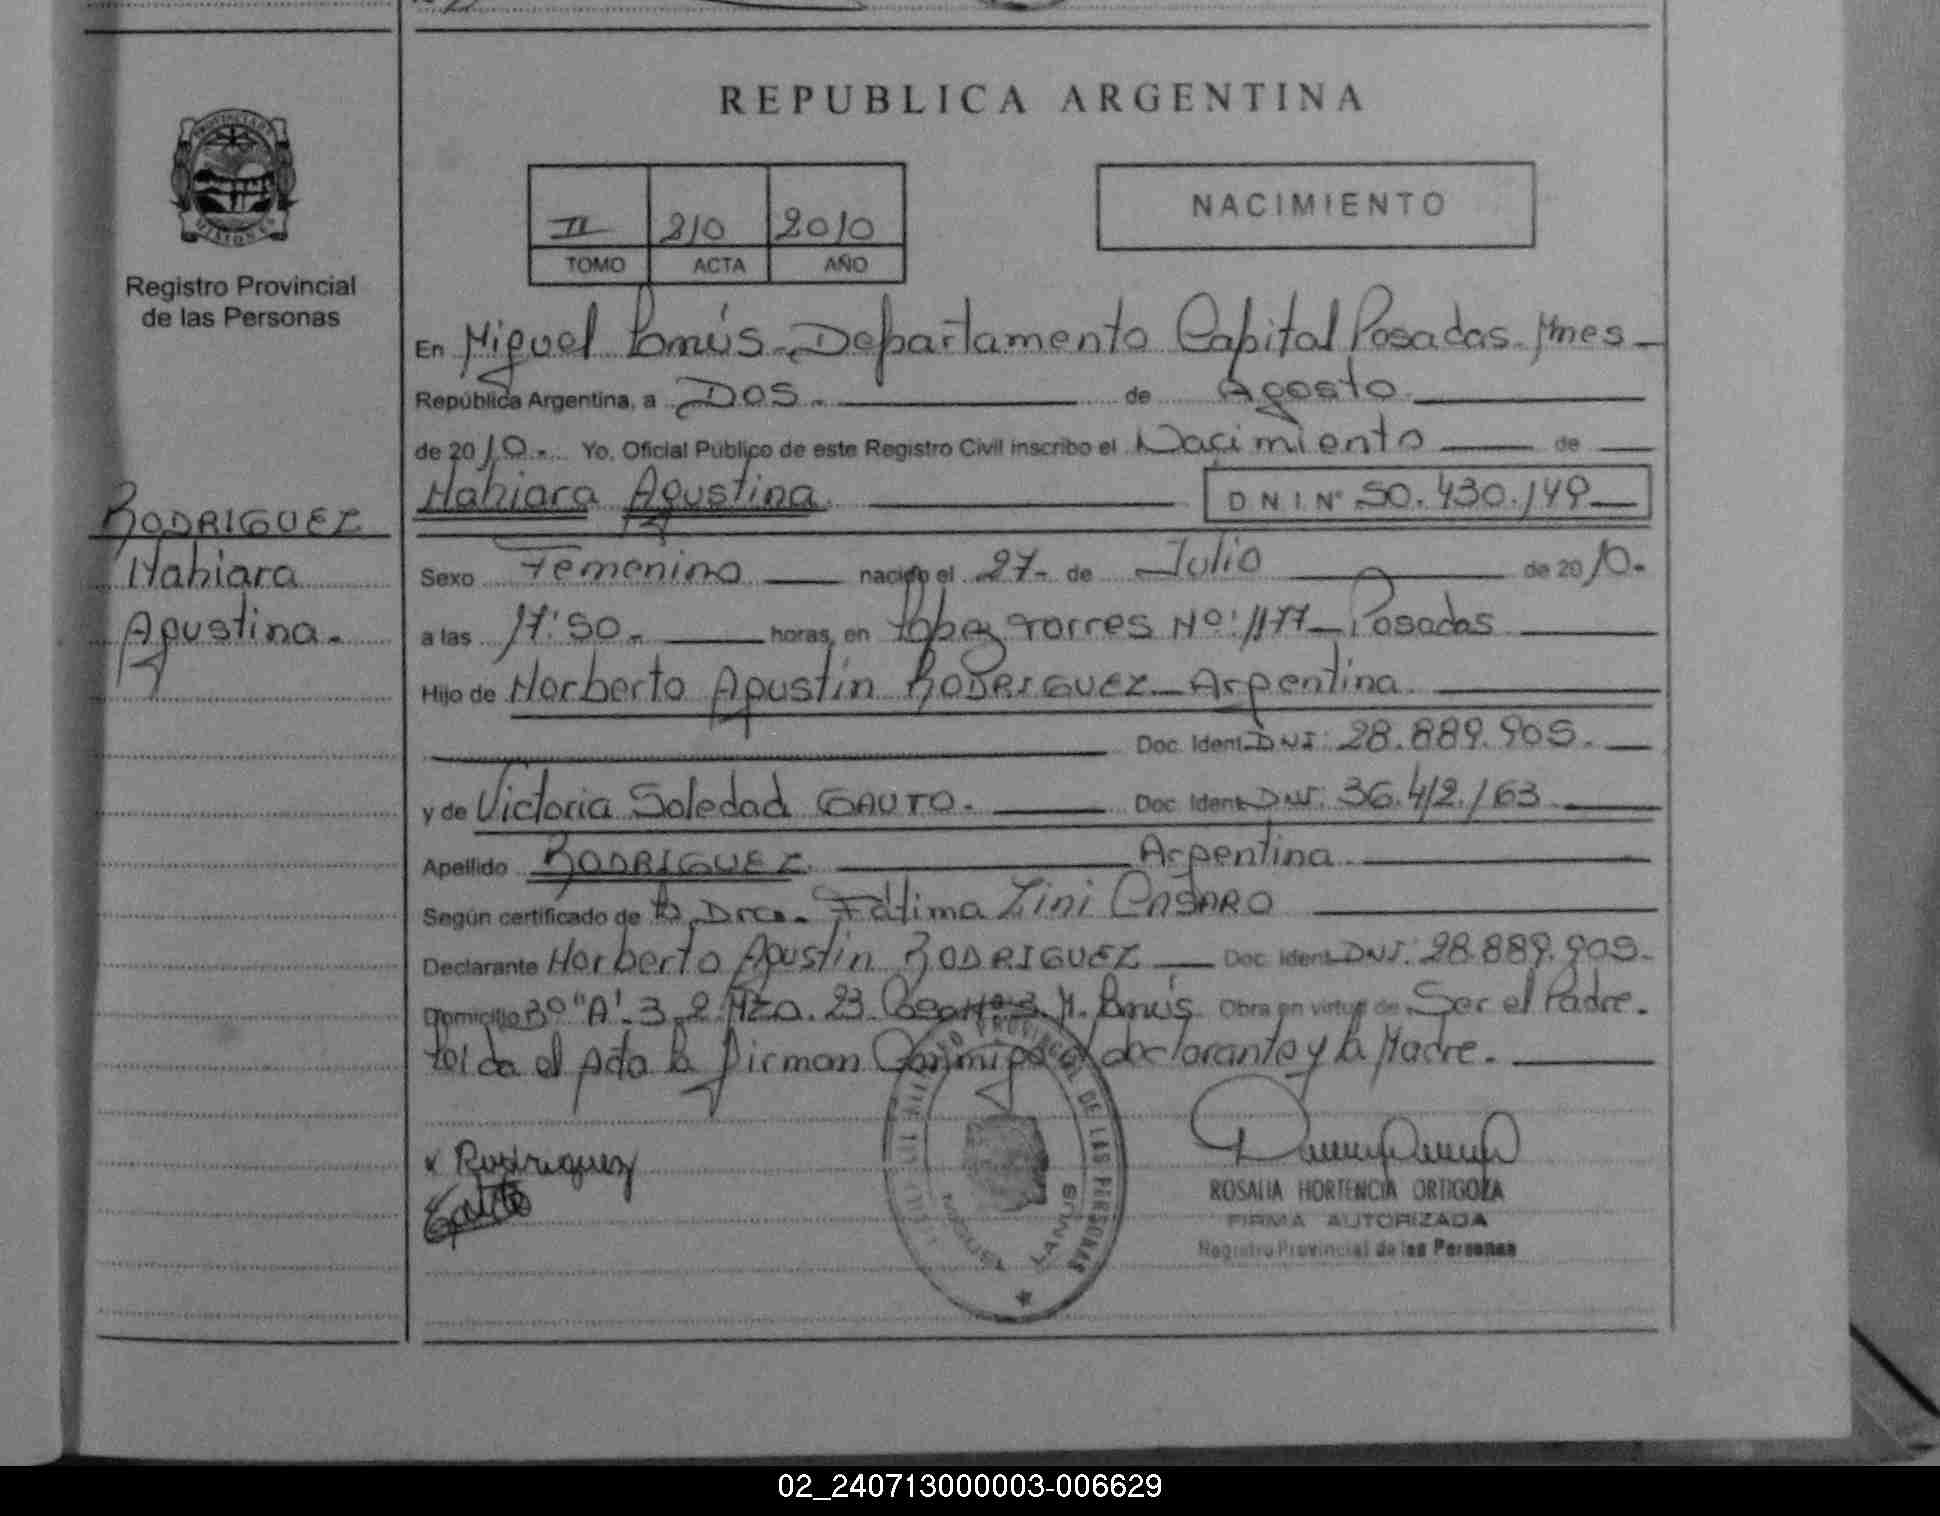 REPUBLICA ARGENTINA
II 210 2010
TOMO ACTA AÑO
NACIMIENTO
PROVINCIA DE
MISIONES
Registro Provincial
de las Personas
RODRIGUEZ
Nahiara
Agustina.
En Miguel Lanús - Departamento Capital Posadas - Mnes
República Argentina, a DOS. de Agosto
de 2010. Yo, Oficial Público de este Registro Civil inscribo el Nacimiento de
Nahiara Agustina. D N I. Nº 50.430.149
Sexo Femenino nacido el 27 - de Julio de 2010.
a las 17:50. horas, en López Torres Nº: 1177 - Posadas
Hijo de Norberto Agustín RODRIGUEZ - Argentina.
Doc. Ident. DNI: 28.889.905.
y de Victoria Soledad GAUTO. Doc. Ident. DNI: 36.412.163
Apellido RODRIGUEZ. Argentina.
Según certificado de la Dra. Fátima Zini CASARO
Declarante Norberto Agustín RODRIGUEZ Doc. Ident. DNI: 28.889.905.
Domicilio Bº "A". 3. 2. Mza. 23. Casa M. Lanús Obra en virtud de Ser el Padre.
leída el Acta la firman Conmigo el declarante y la Madre.
x Rodriguez
Gauto
PROVINCIAL DE LAS PERSONAS
MIGUEL LANUS
ROSALIA HORTENCIA ORTIGOZA
FIRMA AUTORIZADA
Registro Provincial de las Personas
02_240713000003-006629